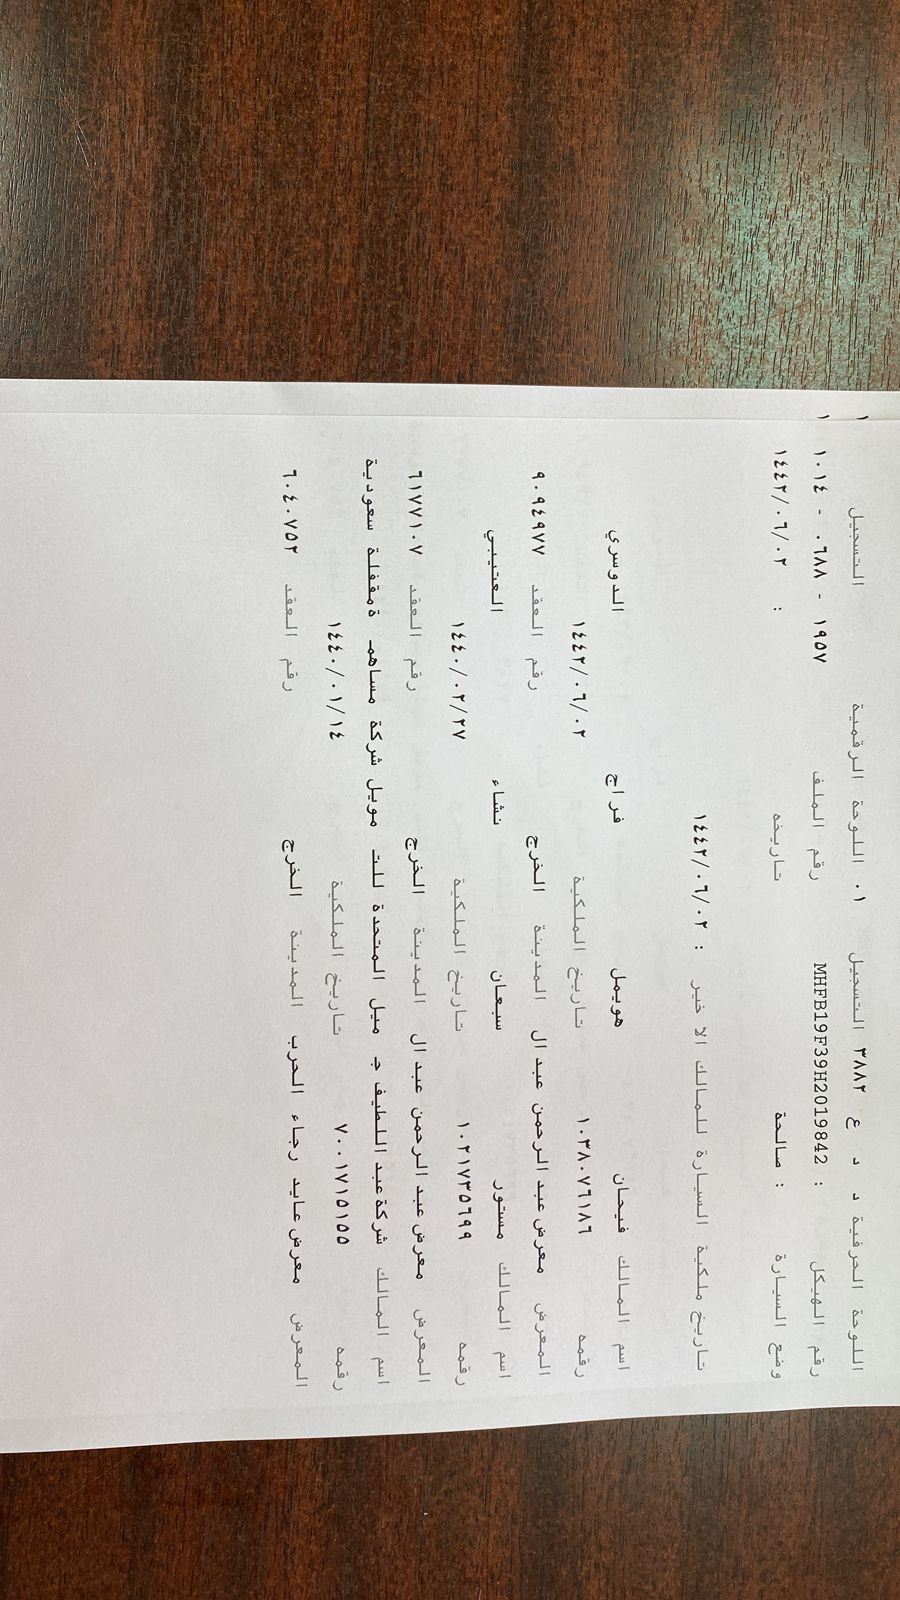 اللوحة الحرفية د د ع ٣٨٨٢ التسجيل ٠١ اللوحة الرقمية التسجيل ١
رقم الهيكل : MHFB19F39H2019842 رقم الملف ١٩٥٧ - ٠٦٨٨ - ١٠١٤ ١
وضع السيارة : صالحة تاريخه : ١٤٤٢/٠٦/٠٢
تاريخ ملكية السيارة للمالك الا خير : ١٤٤٢/٠٦/٠٢
اسم المالك فيحان هويمل فراج الدوسري
رقمه ١٠٣٨٠٧٦١٨٦ تاريخ الملكية ١٤٤٢/٠٦/٠٢
المعرض معرض عبد الرحمن عبد ال المدينة الخرج رقم العقد ٩٠٩٤٩٧٧
اسم المالك مستور سبعان نشاء العتيبي
رقمه ١٠٢١٧٣٥٦٩٩ تاريخ الملكية ١٤٤٠/٠٢/٢٧
المعرض معرض عبد الرحمن عبد ال المدينة الخرج رقم العقد ٦١٧٧١٠٧
اسم المالك شركة عبد اللطيف ج ميل المتحدة للت مويل شركة مساهم ة مقفلة سعودية
رقمه ٧٠٠١٧١٥١٥٥ تاريخ الملكية ١٤٤٠/٠١/١٤
المعرض معرض عايد رجاء الحرب المدينة الخرج رقم العقد ٦٠٤٠٧٥٢